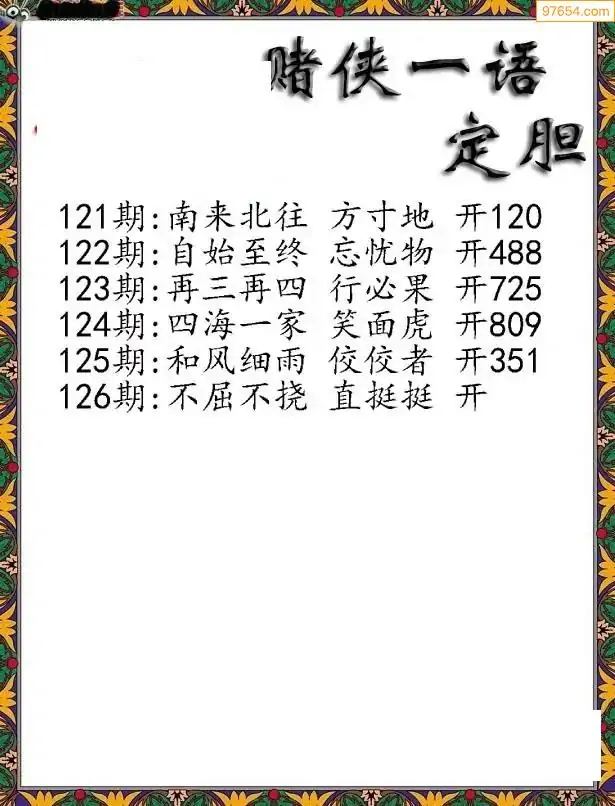 97654.com
赌侠一语
定胆
121期:南来北往 方寸地 开120
122期:自始至终 忘忧物 开488
123期:再三再四 行必果 开725
124期:四海一家 笑面虎 开809
125期:和风细雨 佼佼者 开351
126期:不屈不挠 直挺挺 开